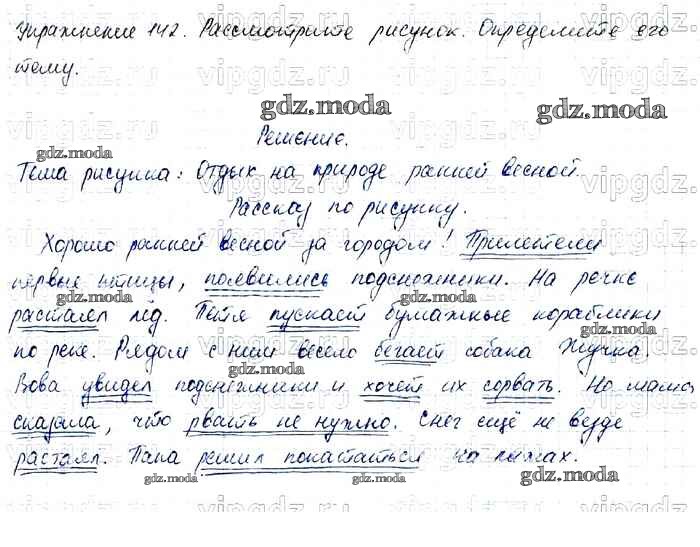 Упражнение 142. Рассмотрите рисунок. Определите его
тему.
gdz.moda
gdz.moda
Решение.
gdz.moda
Тема рисунка: Отдых на природе ранней весной.
Рассказ по рисунку.
Хорошо ранней весной за городом! Прилетели
первые птицы, появились подснежники. На речке
gdz.moda
gdz.moda
растаял лёд. Петя пускает бумажные кораблики
gdz.moda
по реке. Рядом с ним весело бегает собака Жучка.
gdz.moda
Вова увидел подснежники и хочет их сорвать. Но мама
сказала, что рвать не нужно. Снег ещё не везде
gdz.moda
растаял. Папа решил покататься на лыжах.
gdz.moda
gdz.moda
vipgdz.ru